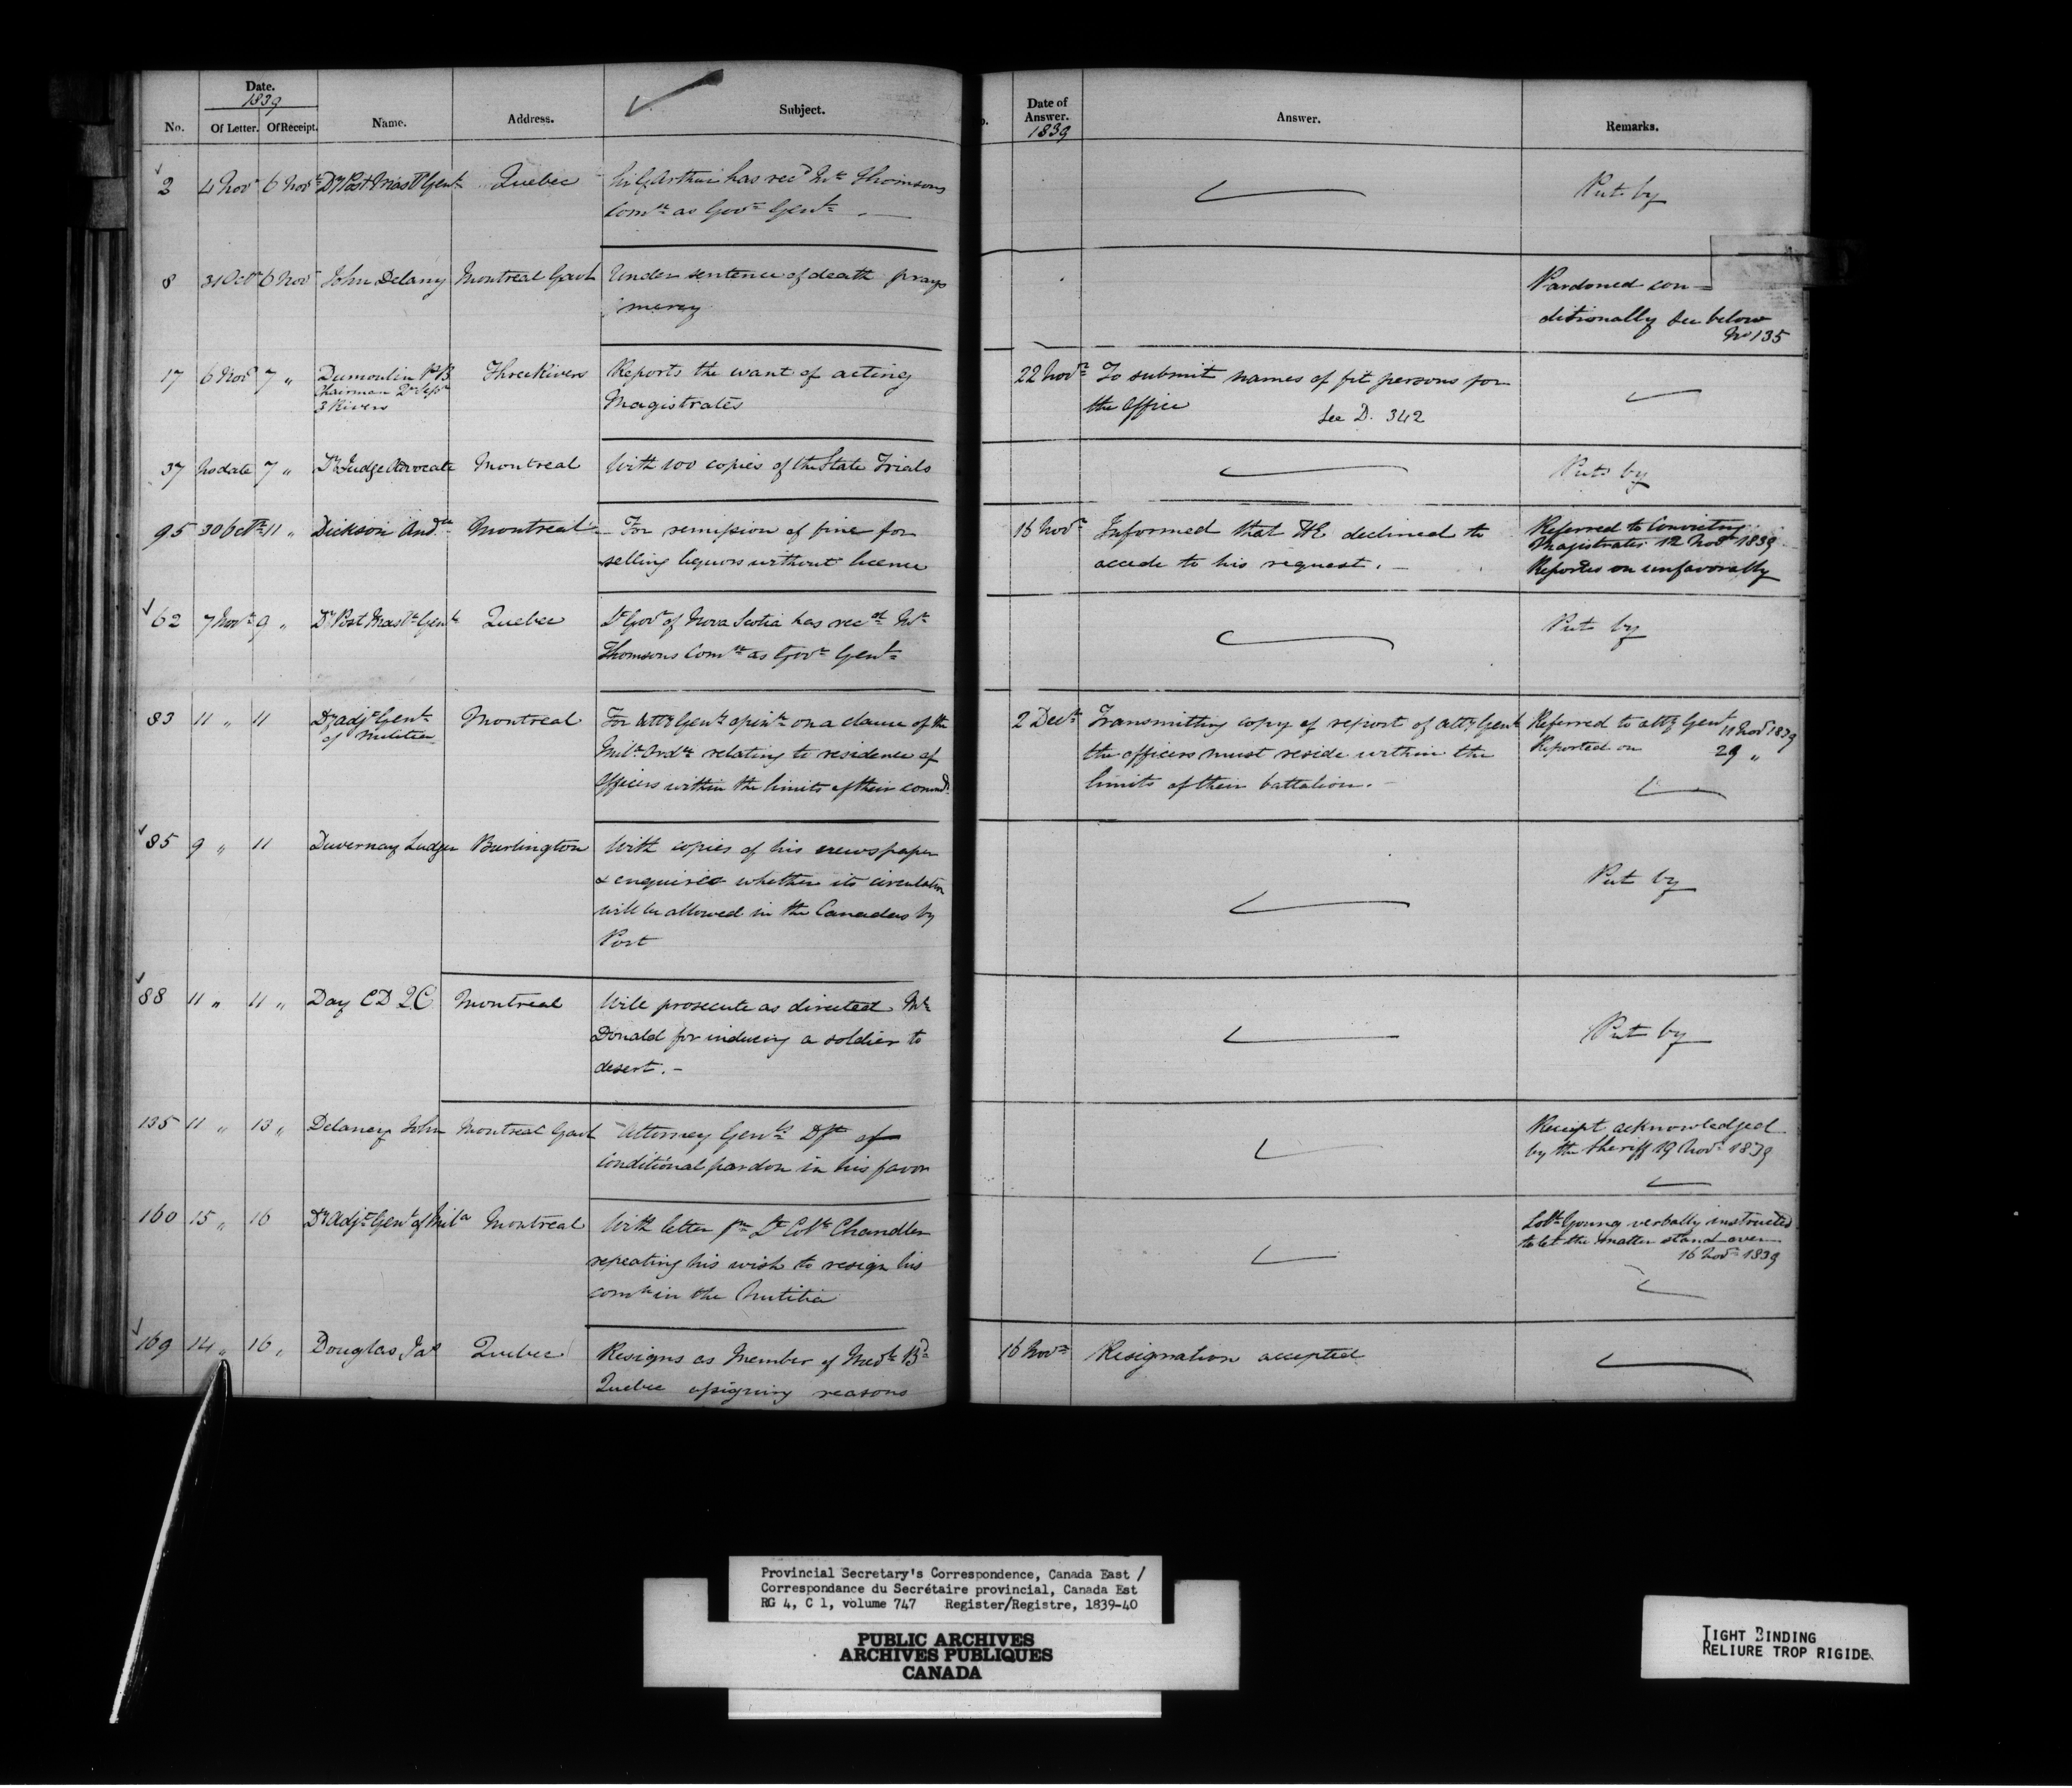 Date.
1839
No. Of Letter. Of Receipt. Name. Address. Subject.
Date of
Answer.
1839
Answer. Remarks.
2 4 Novr 6 Novr Dy Post Mastr Genl Quebec Sir G Arthur has recd Mr Thomsons
Comn as Govr Genl
Put by
8 31 Octr 6 Novr John Delany Montreal Gaol Under sentence of death prays
mercy
Pardoned con=
ditionally See below
No 135
17 6 Novr 7 " Dumoulin Three Rivers Reports the want of acting
Chairman Qr Sess
3 Rivers
Magistrates
22 Novr To submit names of fit persons for
the Office See D. 342
37 No date 7 " Dy Judge Advocate Montreal With 100 copies of the State Trials
Put by
95 30 Octr 11 " Dickson Andw Montreal For remission of fine for
selling liquors without licence
16 Novr Informed that HE declined to
accede to his request.
Referred to Convicting
Magistrates 12 Novr 1839
Reported on unfavorably
62 7 Novr 9 " Dy Post Mastr Genl Quebec Lt Govr of Nova Scotia has recd Mr
Thomsons Comn as Govr Genl
Put by
83 11 " 11 Dy Adjt Genl
of Militia
Montreal For Atty Genls opinn on a clause of the
Mila Ordce relating to residence of
Officers within the limits of their commd.
2 Decr Transmitting copy of report of Atty Genl
the officers must reside within the
limits of their battalion.
Referred to Atty Genl 11 Novr 1839
Reported on 29 "
85 9 " 11 Duvernay Ludger Burlington With copies of his newspaper
& enquires whether its circulation
will be allowed in the Canadas by
Post
Put by
88 11 " 11 " Day C D Q C Montreal Will prosecute as directed Mr
Donald for inducing a soldier to
desert.
Put by
135 11 " 13 " Delaney John Montreal Gaol Attorney Genls Dft of
Conditional pardon in his favor
Receipt acknowledged
by the Sheriff 19 Novr 1839
160 15 " 16 Dy Adjt Genl of Mila Montreal With letter fm Lt Coll Chandler
repeating his wish to resign his
comn in the Militia
Coll Young verbally instructed
to let the matter stand over
16 Novr 1839
169 14 " 16 " Douglas Jas Quebec Resigns as Member of Medl Bd
Quebec assigning reasons
16 Novr Resignation accepted
Provincial Secretary's Correspondence, Canada East /
Correspondance du Secrétaire provincial, Canada Est
RG 4, C 1, volume 747 Register/Registre, 1839-40
PUBLIC ARCHIVES
ARCHIVES PUBLIQUES
CANADA
TIGHT BINDING
RELIURE TROP RIGIDE